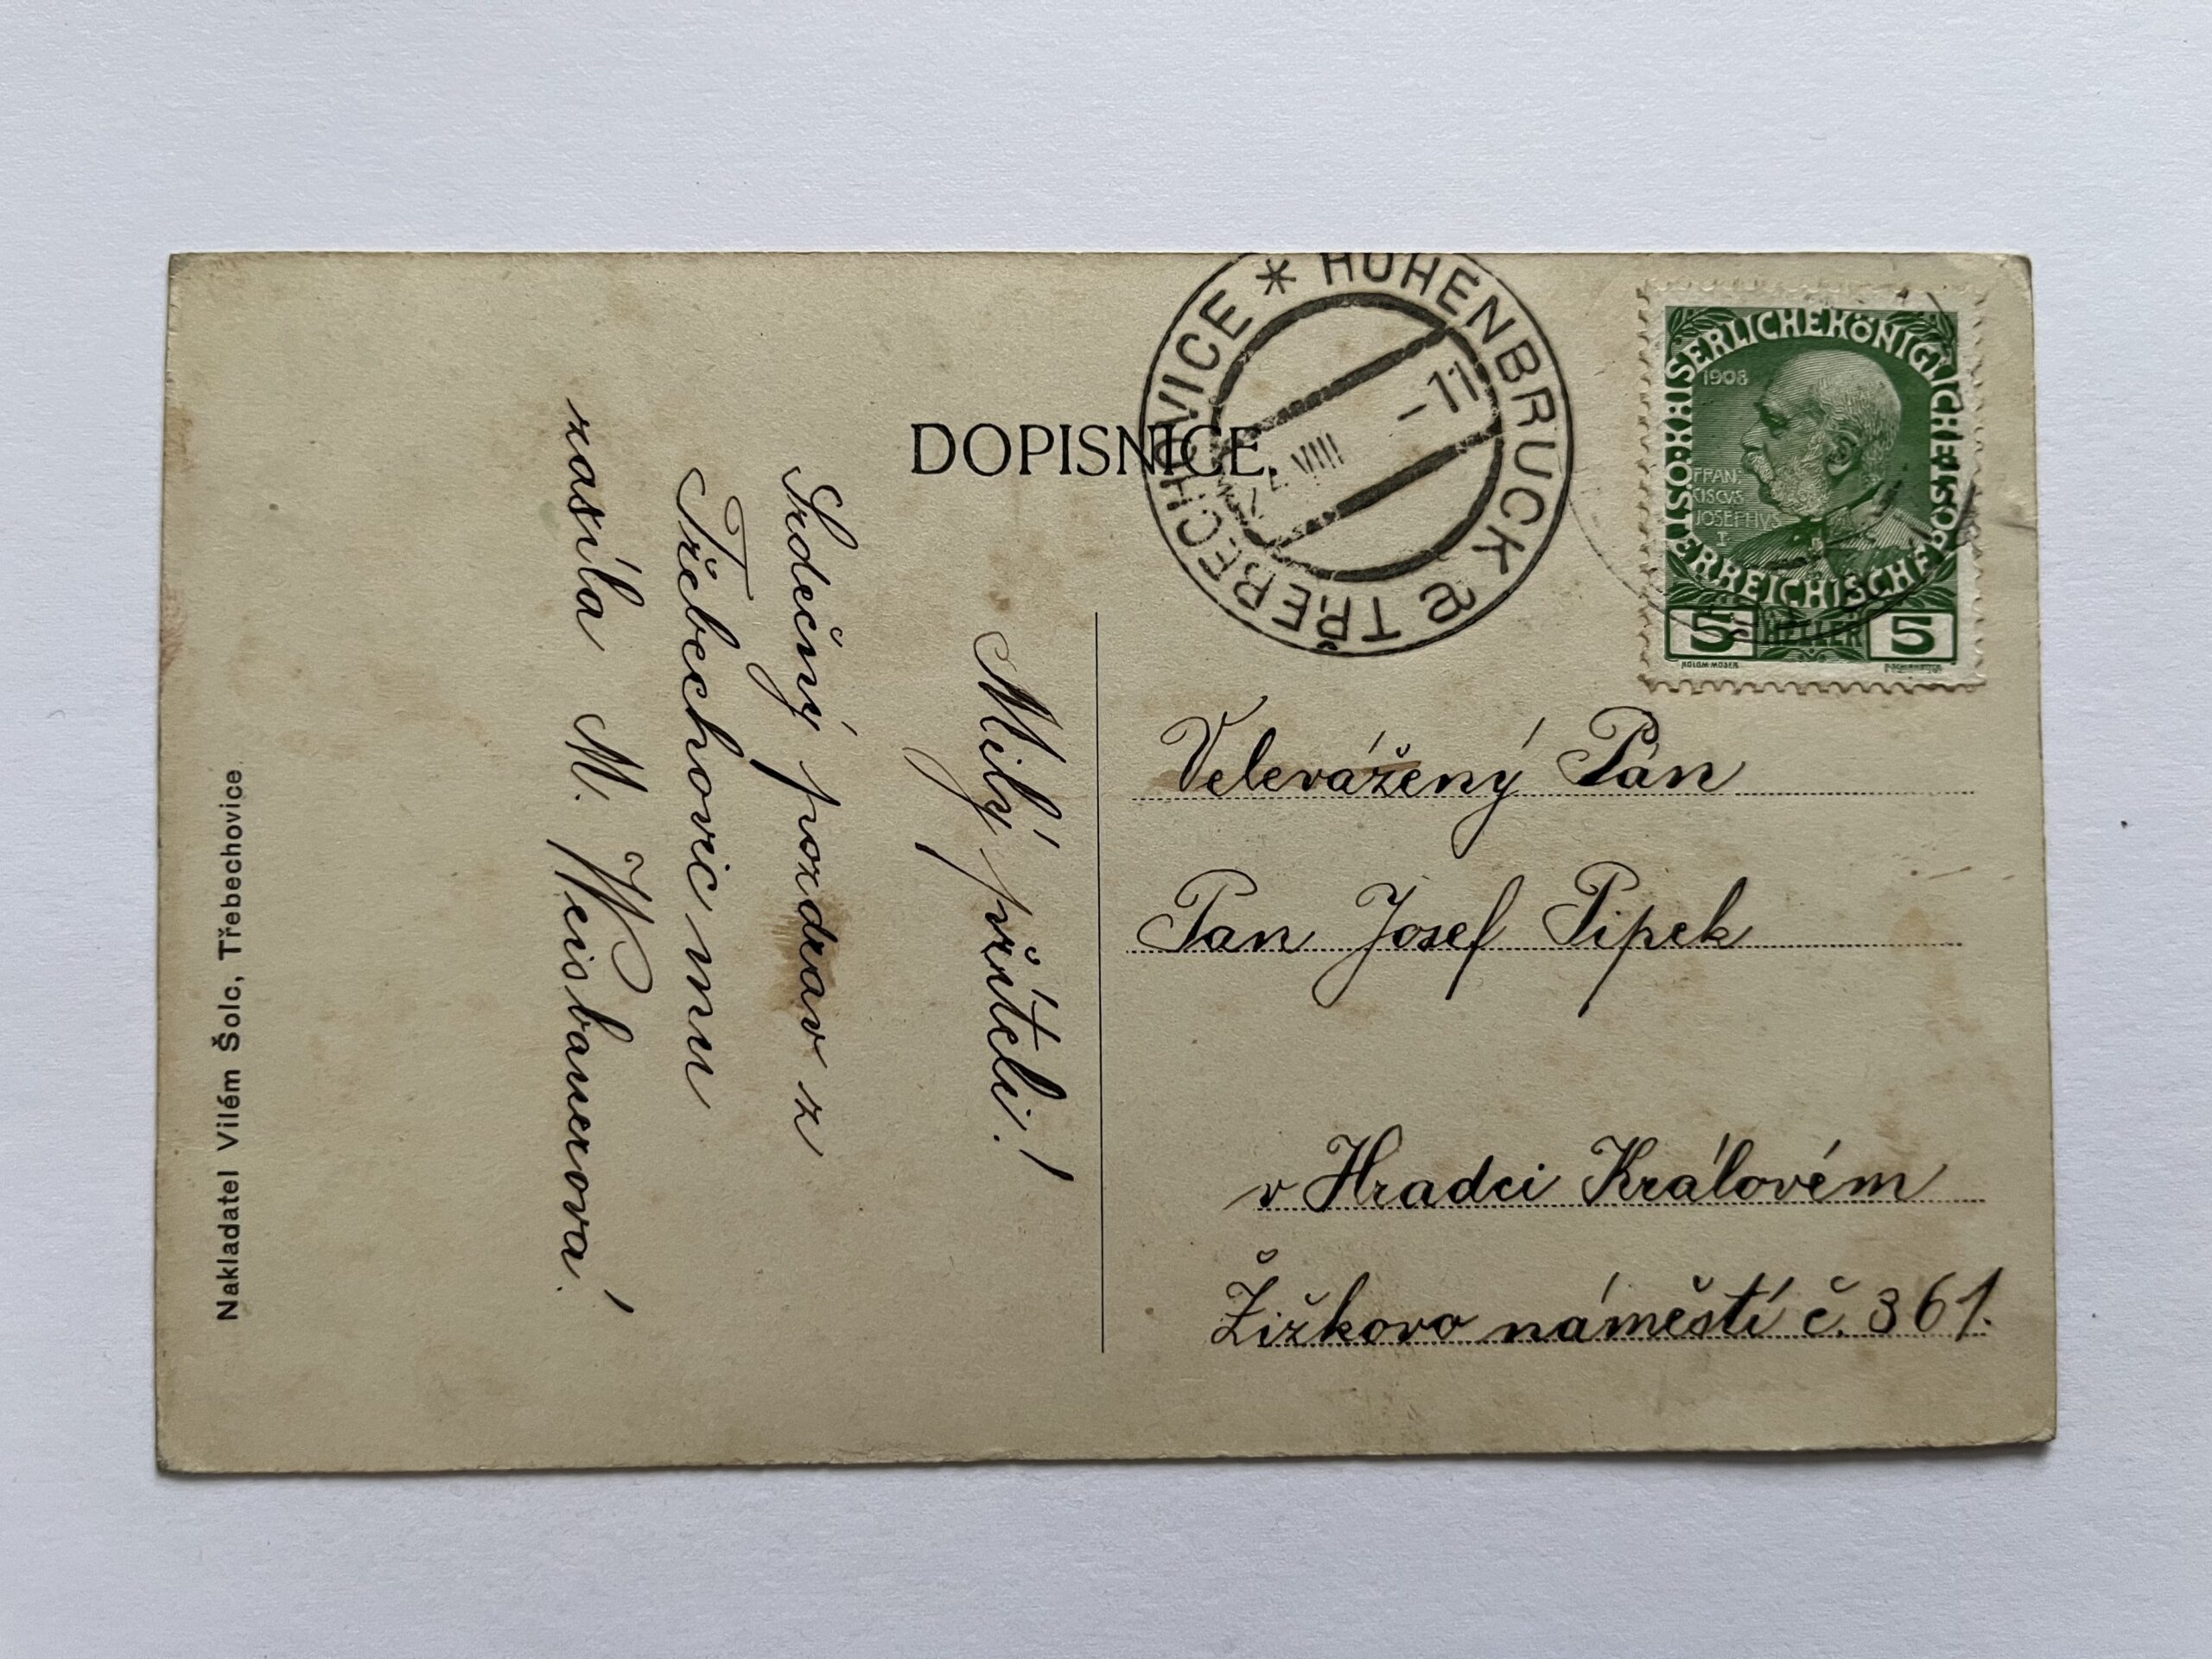 DOPISNICE.
HOHENBRUCK & TŘEBECHOVICE *
VIII -11
KAISERLICHE KÖNIGLICHE POST ÖSTERREICHISCHE
1908
FRAN
CISCVS
JOSEPHVS
I
5 HELLER 5
KOLOM MOSER
Milý příteli!
Srdečný pozdrav z
Třebechovic mu
zasíla M. Weisbauerova!
Velevážený Pán
Pan Josef Pipek
v Hradci Královém
Žižkovo náměstí č. 361.
Nakladatel Vilém Šolc, Třebechovice.